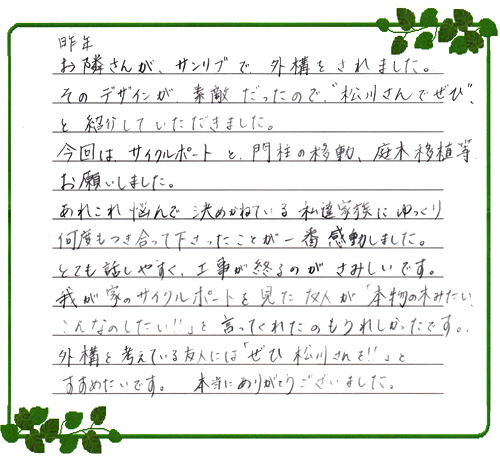 昨年
お隣さんが、サンリブで 外構をされました。
そのデザインが 素敵だったので、"松川さんでぜひ"、
と 紹介していただきました。
今回は、サイクルポートと、門柱の移動、庭木移植等
お願いしました。
あれこれ 悩んで 決めかねている 私達家族に ゆっくり
何度もつき合って下さったことが 一番 感動しました。
とても 話しやすく、工事が終るのが さみしいです。
我が家のサイクルポートを 見た 友人が「本物の木みたい
こんなのしたい!!」と 言ってくれたのも うれしかったです。
外構を 考えている友人には「ぜひ 松川さんを!!」と
すすめたいです。 本当に ありがとうございました。